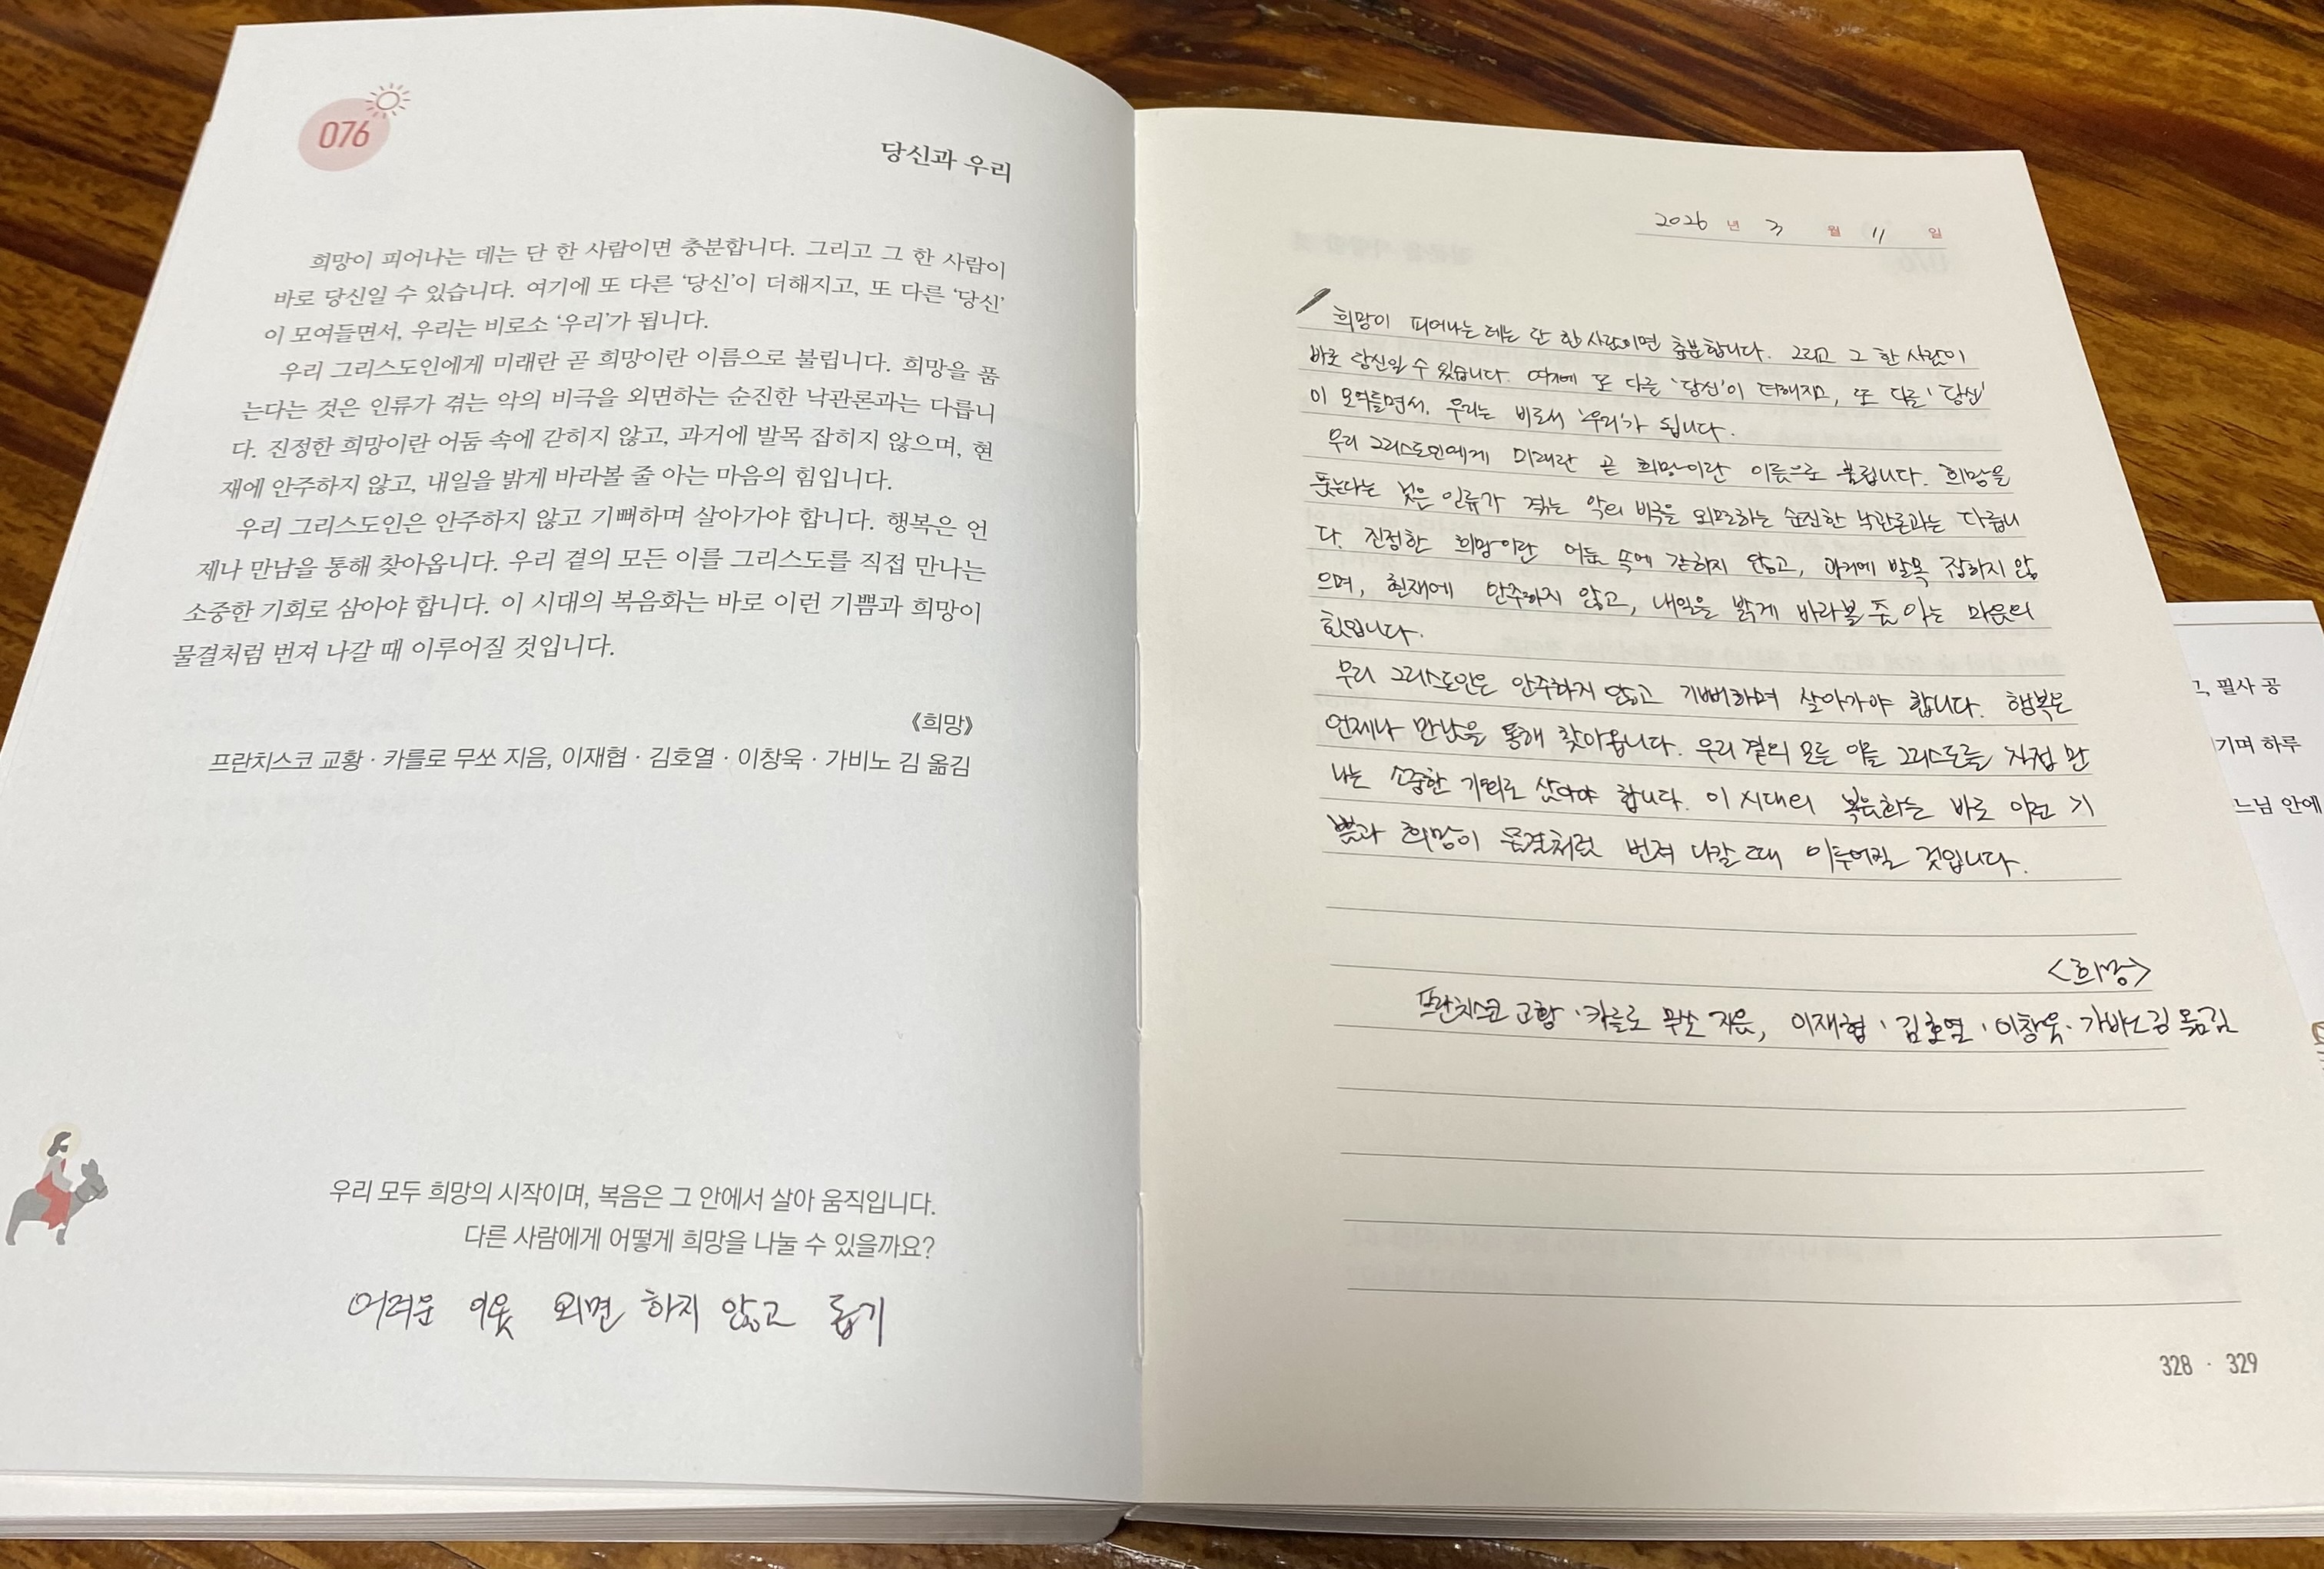 076
당신과 우리
희망이 피어나는 데는 단 한 사람이면 충분합니다. 그리고 그 한 사람이
바로 당신일 수 있습니다. 여기에 또 다른 ‘당신’이 더해지고, 또 다른 ‘당신’
이 모여들면서, 우리는 비로소 ‘우리’가 됩니다.
우리 그리스도인에게 미래란 곧 희망이란 이름으로 불립니다. 희망을 품
는다는 것은 인류가 겪는 악의 비극을 외면하는 순진한 낙관론과는 다릅니
다. 진정한 희망이란 어둠 속에 갇히지 않고, 과거에 발목 잡히지 않으며, 현
재에 안주하지 않고, 내일을 밝게 바라볼 줄 아는 마음의 힘입니다.
우리 그리스도인은 안주하지 않고 기뻐하며 살아가야 합니다. 행복은 언
제나 만남을 통해 찾아옵니다. 우리 곁의 모든 이를 그리스도를 직접 만나는
소중한 기회로 삼아야 합니다. 이 시대의 복음화는 바로 이런 기쁨과 희망이
물결처럼 번져 나갈 때 이루어질 것입니다.
《희망》
프란치스코 교황 · 카를로 무쏘 지음, 이재협 · 김호열 · 이창욱 · 가비노 김 옮김
우리 모두 희망의 시작이며, 복음은 그 안에서 살아 움직입니다.
다른 사람에게 어떻게 희망을 나눌 수 있을까요?
어려운 이웃 외면 하지 않고 돕기
2026 년 3 월 11 일
희망이 피어나는 데는 단 한 사람이면 충분합니다. 그리고 그 한 사람이
바로 당신일 수 있습니다. 여기에 또 다른 '당신'이 더해지고, 또 다른 '당신'
이 모여들면서, 우리는 비로서 '우리'가 됩니다.
우리 그리스도인에게 미래란 곧 희망이란 이름으로 불립니다. 희망을
품는다는 것은 인류가 겪는 악의 비극을 외면하는 순진한 낙관론과는 다릅니
다. 진정한 희망이란 어둠 속에 갇히지 않고, 과거에 발목 잡히지 않
으며, 현재에 안주하지 않고, 내일을 밝게 바라볼 줄 아는 마음의
힘입니다.
우리 그리스도인은 안주하지 않고 기뻐하며 살아가야 합니다. 행복은
언제나 만남을 통해 찾아옵니다. 우리 곁의 모든 이를 그리스도를 직접 만
나는 소중한 기회로 삼아야 합니다. 이 시대의 복음화는 바로 이런 기
쁨과 희망이 물결처럼 번져 나갈 때 이루어질 것입니다.
<희망>
프란치스코 교황 · 카를로 무쏘 지음, 이재협 · 김호열 · 이창욱 · 가비노 김 옮김
328 · 329
필사 공
기며 하루
느님 안에